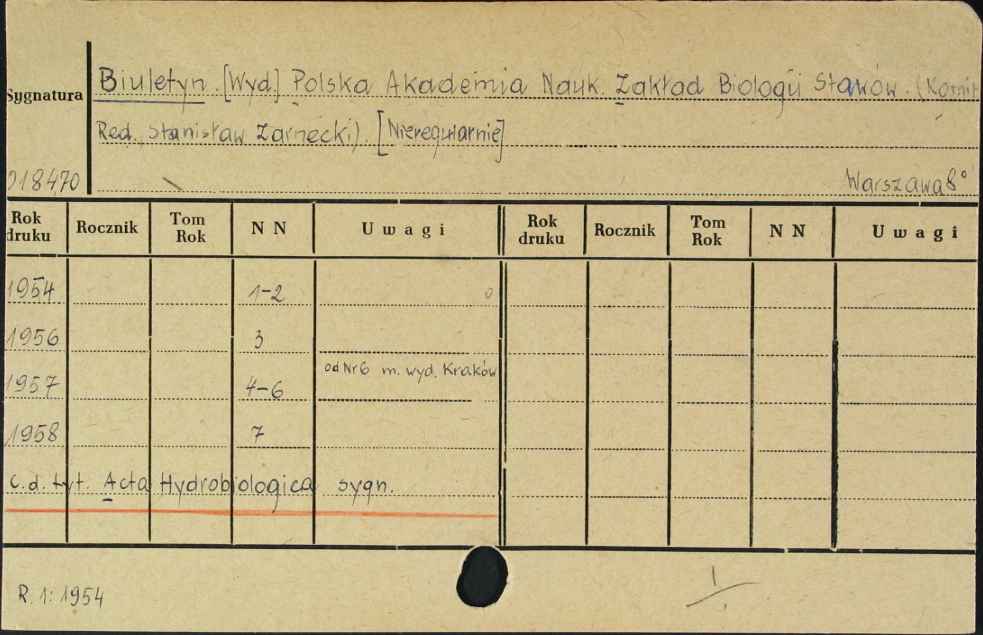 Sygnatura
Biuletyn. [Wyd.] Polska Akademia Nauk. Zakład Biologii Stawów. (Komit
Red. Stanisław Żarnecki). [Nieregularnie]
018470
Warszawa 8°
Rok druku Rocznik Tom Rok N N Uwagi Rok druku Rocznik Tom Rok N N Uwagi
1954 1-2
1956 3
1957 4-6 od Nr 6 m. wyd. Kraków
1958 7
C.d. tyt. Acta Hydrobiologica sygn.
R. 1: 1954